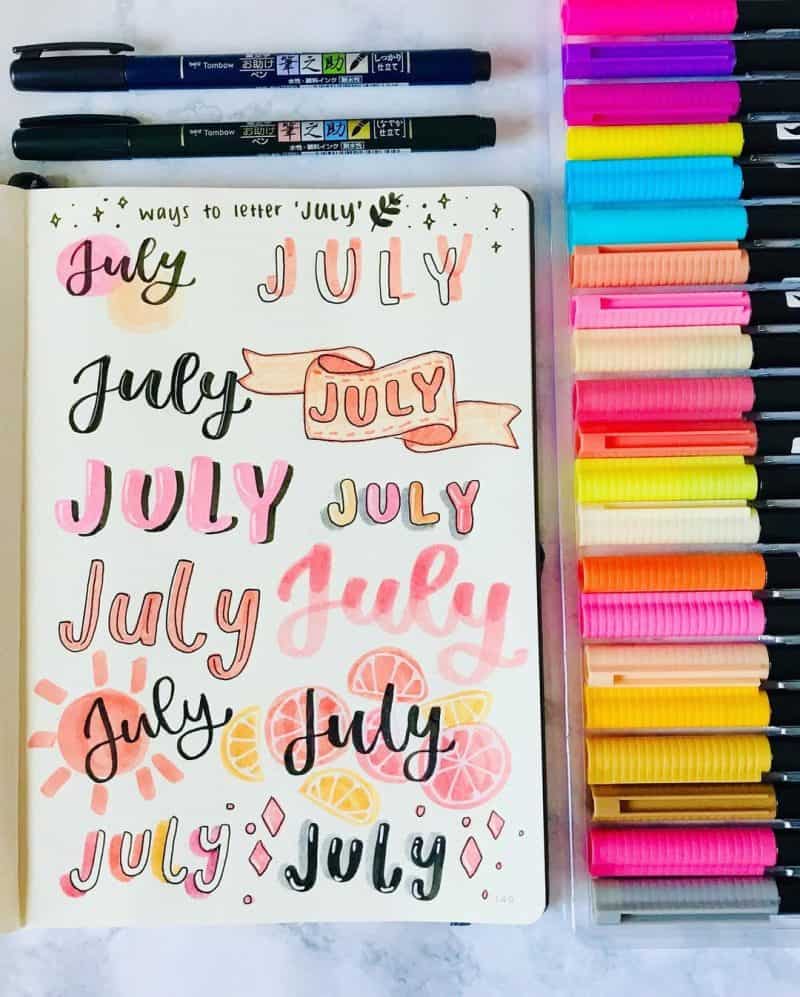 Tombow お助け ペン 筆之助 しっかり仕立て
水性・顔料インク 耐水性
Tombow お助け ペン 筆之助 しなやか仕立て
水性・顔料インク 耐水性
ways to letter 'JULY'
July JULY
July JULY
JULY JULY
July July
July July
July July